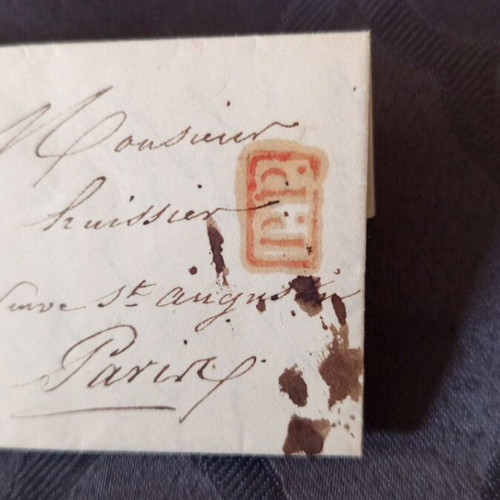 Monsieur
huissier
neuve St. augustin
Paris
P.P.